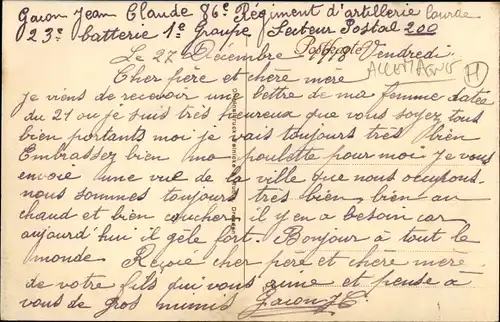 Gacon Jean Claude 86e Régiment d'artillerie lourde
23e batterie 1e Groupe Secteur Postal 200
Le 27 Décembre 1918 Vendredi
Postkarte
ALLEMAGNE
H
Cher père et chère mère
je viens de recevoir une lettre de ma femme datée
du 21 ou je suis très heureux que vous soyez tous
bien portants moi je vais toujours très bien
Embrassez bien ma poulette pour moi je vous
envoie une vue de la ville que nous occupons
nous sommes toujours très bien bien au
chaud et bien coucher il y en a besoin car
aujourd'hui il gèle fort. Bonjour à tout le
monde Reçoie cher père et chère mère
de votre fils qui vous aime et pense à
vous de gros mimis Gacon J C